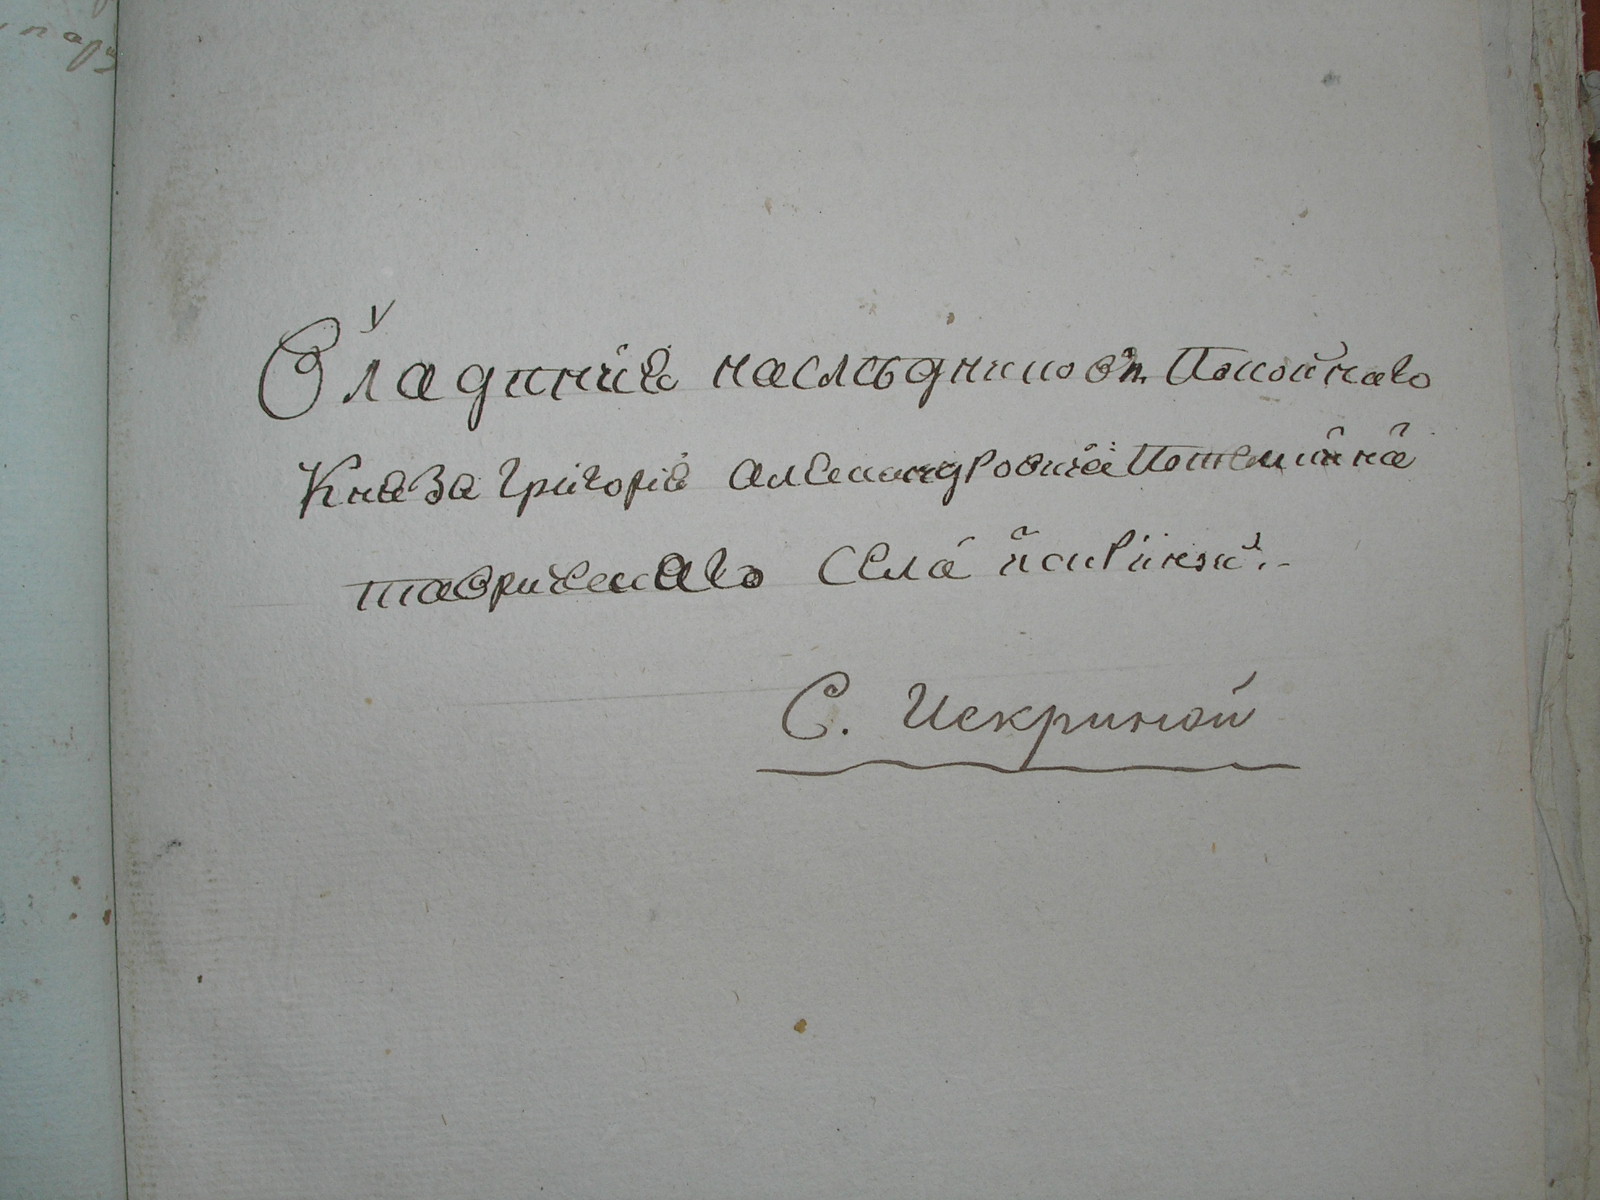 Владиния наследниковъ Покойнаго
Князя Григория Александровича Потемкина
таврическаго Села искриной.-
С. Искриной